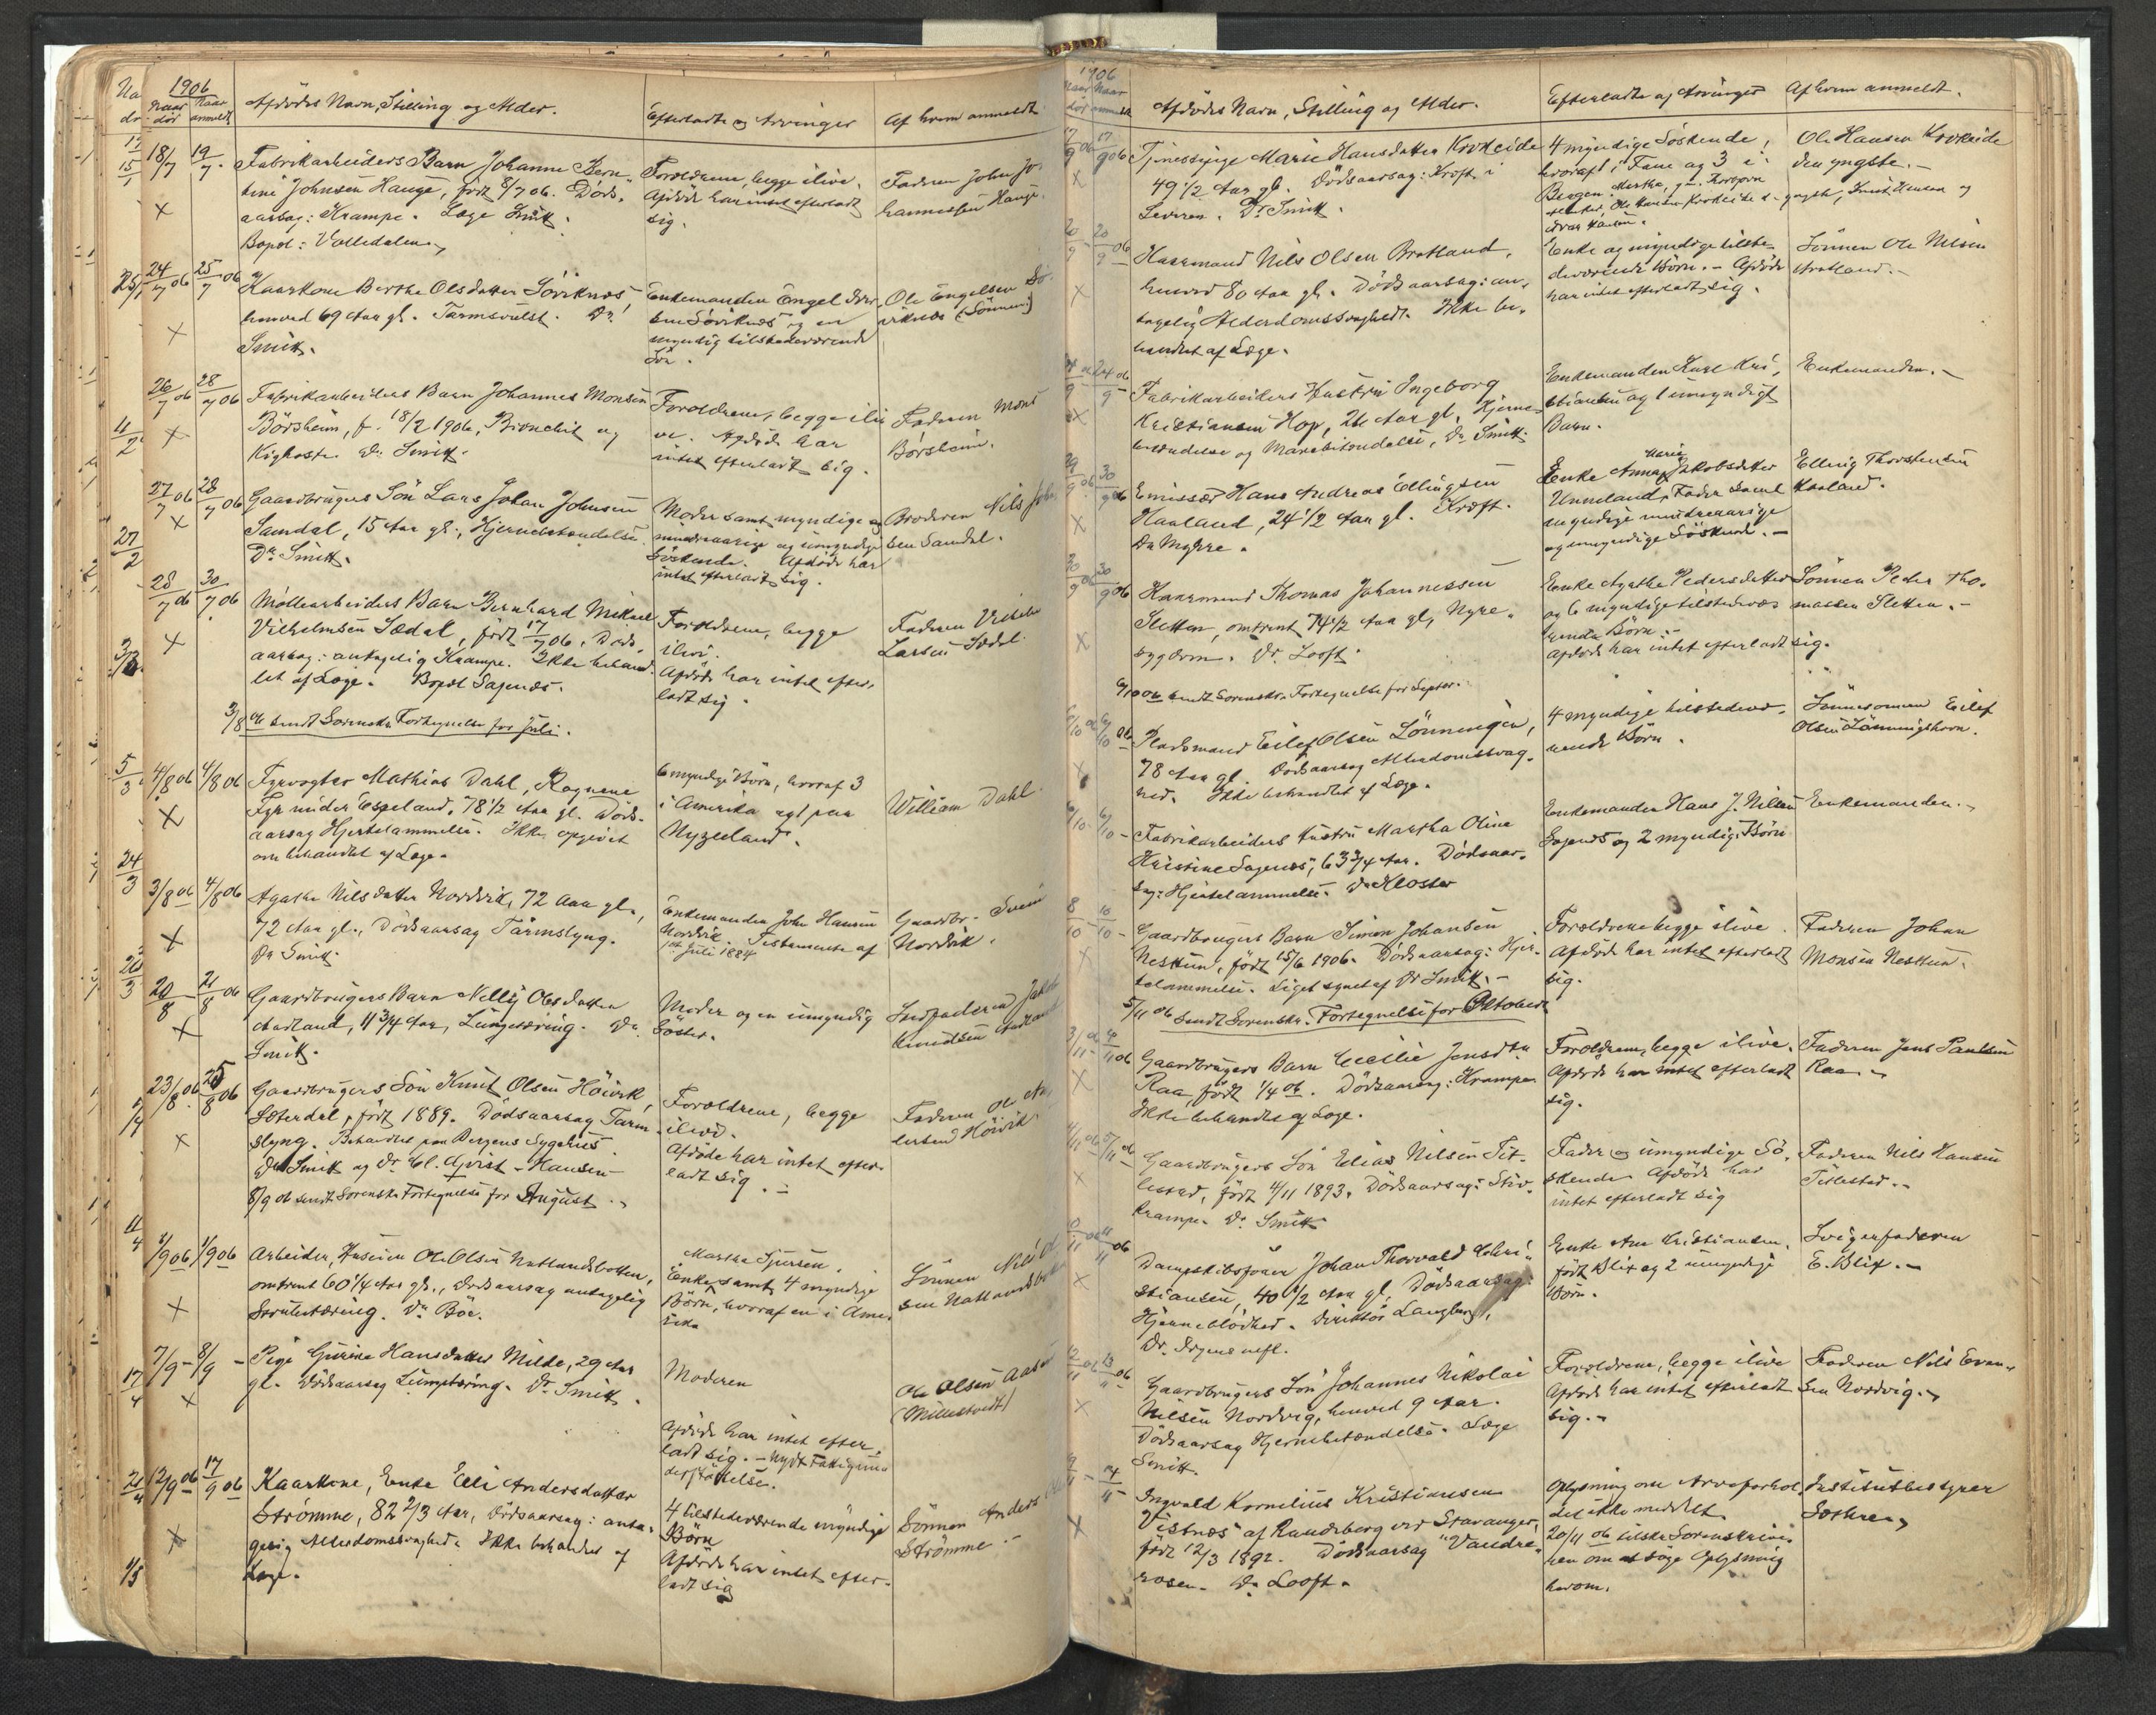 1906
Naar død
Naar anmeldt
Afdødes Navn, Stilling og Alder.
Efterladte og Arvinger
Af hvem anmeldt
18/7 19/7
Fabrikarbeiders Barn Johanne Bern-
tine Johnsen Hauge, født 8/7 06. Døds-
aarsag: Krampe. Læge Smitt.
Bopæl:
Forældrene, begge ilive.
Afdøde har intet efterladt
sig.
Faderen John Jo-
hannessen Hauge
24/7 06 25/7 06
Kaarkone Berthe Olsdatter Søviknæs,
henved 69 Aar gl. Tarmsvulst. Dr.
Smitt.
Enkemanden Engel
Søviknæs og en
myndig tilstedeværende
Søn.
Ole Engelsen Sø-
viknæs (Sønnen)
26/7 06 28/7 06
Fabrikarbeiders Barn Johannes Monsen
Børsheim, f. 18/2 1906, Bronchit og
Kighoste. Dr. Smitt.
Forældrene, begge ili-
ve. Afdøde har
intet efterladt sig.
Faderen Mons
Børsheim.
27/7 06 28/7 06
Gaardbrugers Søn Lars Johan Johnsen
Samdal, 15 Aar gl., Hjernebetændelse.
Dr. Smitt.
Moder samt myndige og
mindreaarige og umyndige
Søskende. Afdøde har
intet efterladt sig.
Broderen Nils John
sen Samdal.
28/7 06 30/7 06
Møllearbeiders Barn Bernhard Mikael
Vilhelmsen Sædal, født 17/7 06. Døds-
aarsag: antagelig Krampe. Ikke behand-
let af Læge. Bopæl Sagenæs.
Forældrene, begge
ilive.
Afdøde har intet efter-
ladt sig.
Faderen
Larsen Sædal
3/8 06 sendt Sorenskr. Fortegnelse for Juli.
4/8 06 4/8 06
Fyrvogter Mathias Dahl,
Fyr under Espeland, 78 1/2 Aar gl. Døds-
aarsag Hjertelammelse. Ikke opgivet
om behandlet af Læge.
6 myndige Børn, hvoraf 3
i Amerika og 1 paa
Nyzeeland.
William Dahl.
3/8 06 4/8 06
Agathe Nilsdatter Nordvik, 72 Aar gl.,
72 Aar gl., Dødsaarsag Tarmslyng.
Dr. Smitt.
Enkemanden John Hansen
Nordvik. Testamente af
Juli 1884
Gaardbr. Svein
Nordvik.
20/8 21/8 06
Gaardbrugers Barn Nelly Olsdatter
Aadland, 11 3/4 Aar, Lungetæring. Dr.
Smitt.
Moder og en umyndig
Søster.
Stedfaderen
Knudsen Aadland
23/8 06 25/8 06
Gaardbrugers Søn Knut Olsen Høivik,
Sæterdal, født 1889. Dødsaarsag Tarm-
slyng. Behandlet paa Bergens Sygehus.
Dr. Smitt og Dr. Cl. Qvist-Hansen
Forældrene, begge
ilive.
Afdøde har intet efter-
ladt sig.
Faderen Ole
Høivik
8/9 06 sendt Sorenskr. Fortegnelse for August.
1/9 06 1/9 06
Arbeider, Husmand Ole Olsen Natlandsbotten,
omtrent 60 1/4 Aar gl., Dødsaarsag antagelig
Strubetæring. Dr. Bøe.
Martha Sjursen,
Enke, samt 4 myndige
Børn, hvoraf en i Ame-
rika
Sønnen Nils Ol
sen Natlandsbotten
7/9 8/9
Pige Gurine Hansdatter Milde, 29 Aar
gl. Dødsaarsag Lungetæring. Dr. Smitt.
Moderen
Afdøde har intet efter-
ladt sig. - Nydt Fattigun-
derstøttelse.
Ole Olsen
(Mildetvedt)
12/9 06 17/9 06
Kaarkone, Enke Elli Andersdatter
Strømme, 82 2/3 Aar, Dødsaarsag: anta-
gelig Alderdomssvaghed. Ikke behandlet af
Læge.
4 tilstedeværende myndige
Børn
Afdøde har intet efter-
ladt sig
Sønnen Anders
Strømme
1906
Naar død
Naar anmeldt
Afdødes Navn, Stilling og Alder.
Efterladte og Arvinger
Af hvem anmeldt.
17/9 06 17/9 06
Tjenestepige Marie Hansdatter Krokeide
49 1/2 Aar gl. Dødsaarsag: Kræft i
Leveren. Dr. Smitt.
4 myndige Søskende,
hvoraf 1 i Fane og 3 i
Bergen. Martha,
Ole Hansen Krokeide d. yngste, Knut Hansen og
Ivar Hansen.
Ole Hansen Krokeide
den yngste.
20/9 20/9 06
Kaarmand Nils Olsen Bratland,
henved 80 Aar gl. Dødsaarsag: an-
tagelig Alderdomssvaghed. Ikke be-
handlet af Læge.
Enke og myndige tilste-
deværende Børn. - Afdøde
har intet efterladt sig.
Sønnen Ole Nilsen
Bratland.
24/9 06
Fabrikarbeiders Hustru Ingeborg
Kristiansen Hop, 26 Aar gl. Hjerne-
betændelse og Mavebetændelse, Dr. Smitt.
Enkemanden Karl Kri-
stiansen og 1 umyndigt
Barn.
Enkemanden.
29/9 06 30/9 06
Emissær Hans Andreas Ellingsen
Haaland, 24 1/2 Aar gl. Kræft.
Dr. Myhre.
Enke Anna Marie Jakobsdatter
Unneland, Fader samt
myndige mindreaarige
og umyndige Søskende.
Elling Thorstensen
Haaland.
30/9 06 30/9 06
Kaarmand Thomas Johannessen
Sletten, omtrent 74 1/2 Aar gl, Nyre-
sygdom. Dr. Looft.
Enke Agathe Pedersdatter
og 6 myndige tilstedevæ-
rende Børn.
Afdøde har intet efterladt sig.
Sønnen Peder Tho-
massen Sletten.
6/10 06 sendt Sorenskr. Fortegnelse for Septbr.
6/10 06
Pladsmand Eilef Olsen Lønningen,
78 Aar gl. Dødsaarsag Alderdomssvag-
hed. Ikke behandlet af Læge.
4 myndige tilstedevæ-
rende Børn.
Sønnesønnen Eilef
Olsen Lønningshavn.
6/10 6/10
Fabrikarbeiders Hustru Martha Oline
Kristine Sagenæs, 63 3/4 Aar. Dødsaar-
sag: Hjertelammelse. Dr. Kloster
Enkemanden Hans J. Nilsen
Sagenæs og 2 myndige Børn
Enkemanden.
8/10 10/10
Gaardbrugers Barn Simon Johansen
Nesttun, født 15/6 1906. Dødsaarsag: Hjer-
telammelse. Liget synet af Dr. Smitt.
Forældrene begge ilive.
Afdøde har intet efterladt
sig.
Faderen Johan
Monsen Nesttun.
5/11 06 sendt Sorenskr. Fortegnelse for Oktober
3/11 4/11 06
Gaardbrugers Barn Cecilie Jensdtr.
Raa, født 1/4 06. Dødsaarsag: Krampe.
Ikke behandlet af Læge.
Forældrene, begge ilive.
Afdøde har intet efterladt
sig.
Faderen Jens Paulsen
Raa
4/11 06 5/11 06
Gaardbrugers Søn Edias Nilsen Tit-
lestad, født 4/11 1893. Dødsaarsag: Stiv-
krampe. Dr. Smitt
Fader og umyndige Sø-
skende. Afdøde har
intet efterladt sig
Faderen Nils Hansen
Titlestad.
10/11 06 11/11 06
Dampskibsfører Johan Thorvald Chri-
stiansen, 40 1/2 Aar gl. Dødsaarsag:
Hjerneblødhed.
Enke Kristiansen,
født Blix og 2 umyndige
Børn.
Svigerfaderen
E. Blix.
12/11 06 13/11 06
Gaardbrugers Søn Johannes Nikolai
Nilsen Nordvig, henved 9 Aar.
Dødsaarsag Hjernebetændelse. Læge
Smitt.
Forældrene, begge ilive
Afdøde har intet efterladt
sig.
Faderen Nils
sen Nordvig.
14/11
Ingvald Kornelius Kristiansen
Vistnæs af Randeberg ved Stavanger,
født 12/3 1892. Dødsaarsag "Vandre-
rosen. Dr. Looft.
Oplysning om Arveforhol-
det ikke meddelt
20/11 06 tilskr. Sorenskrive-
ren om at søge Oplysning
herom.
Institutbestyrer
Sothre